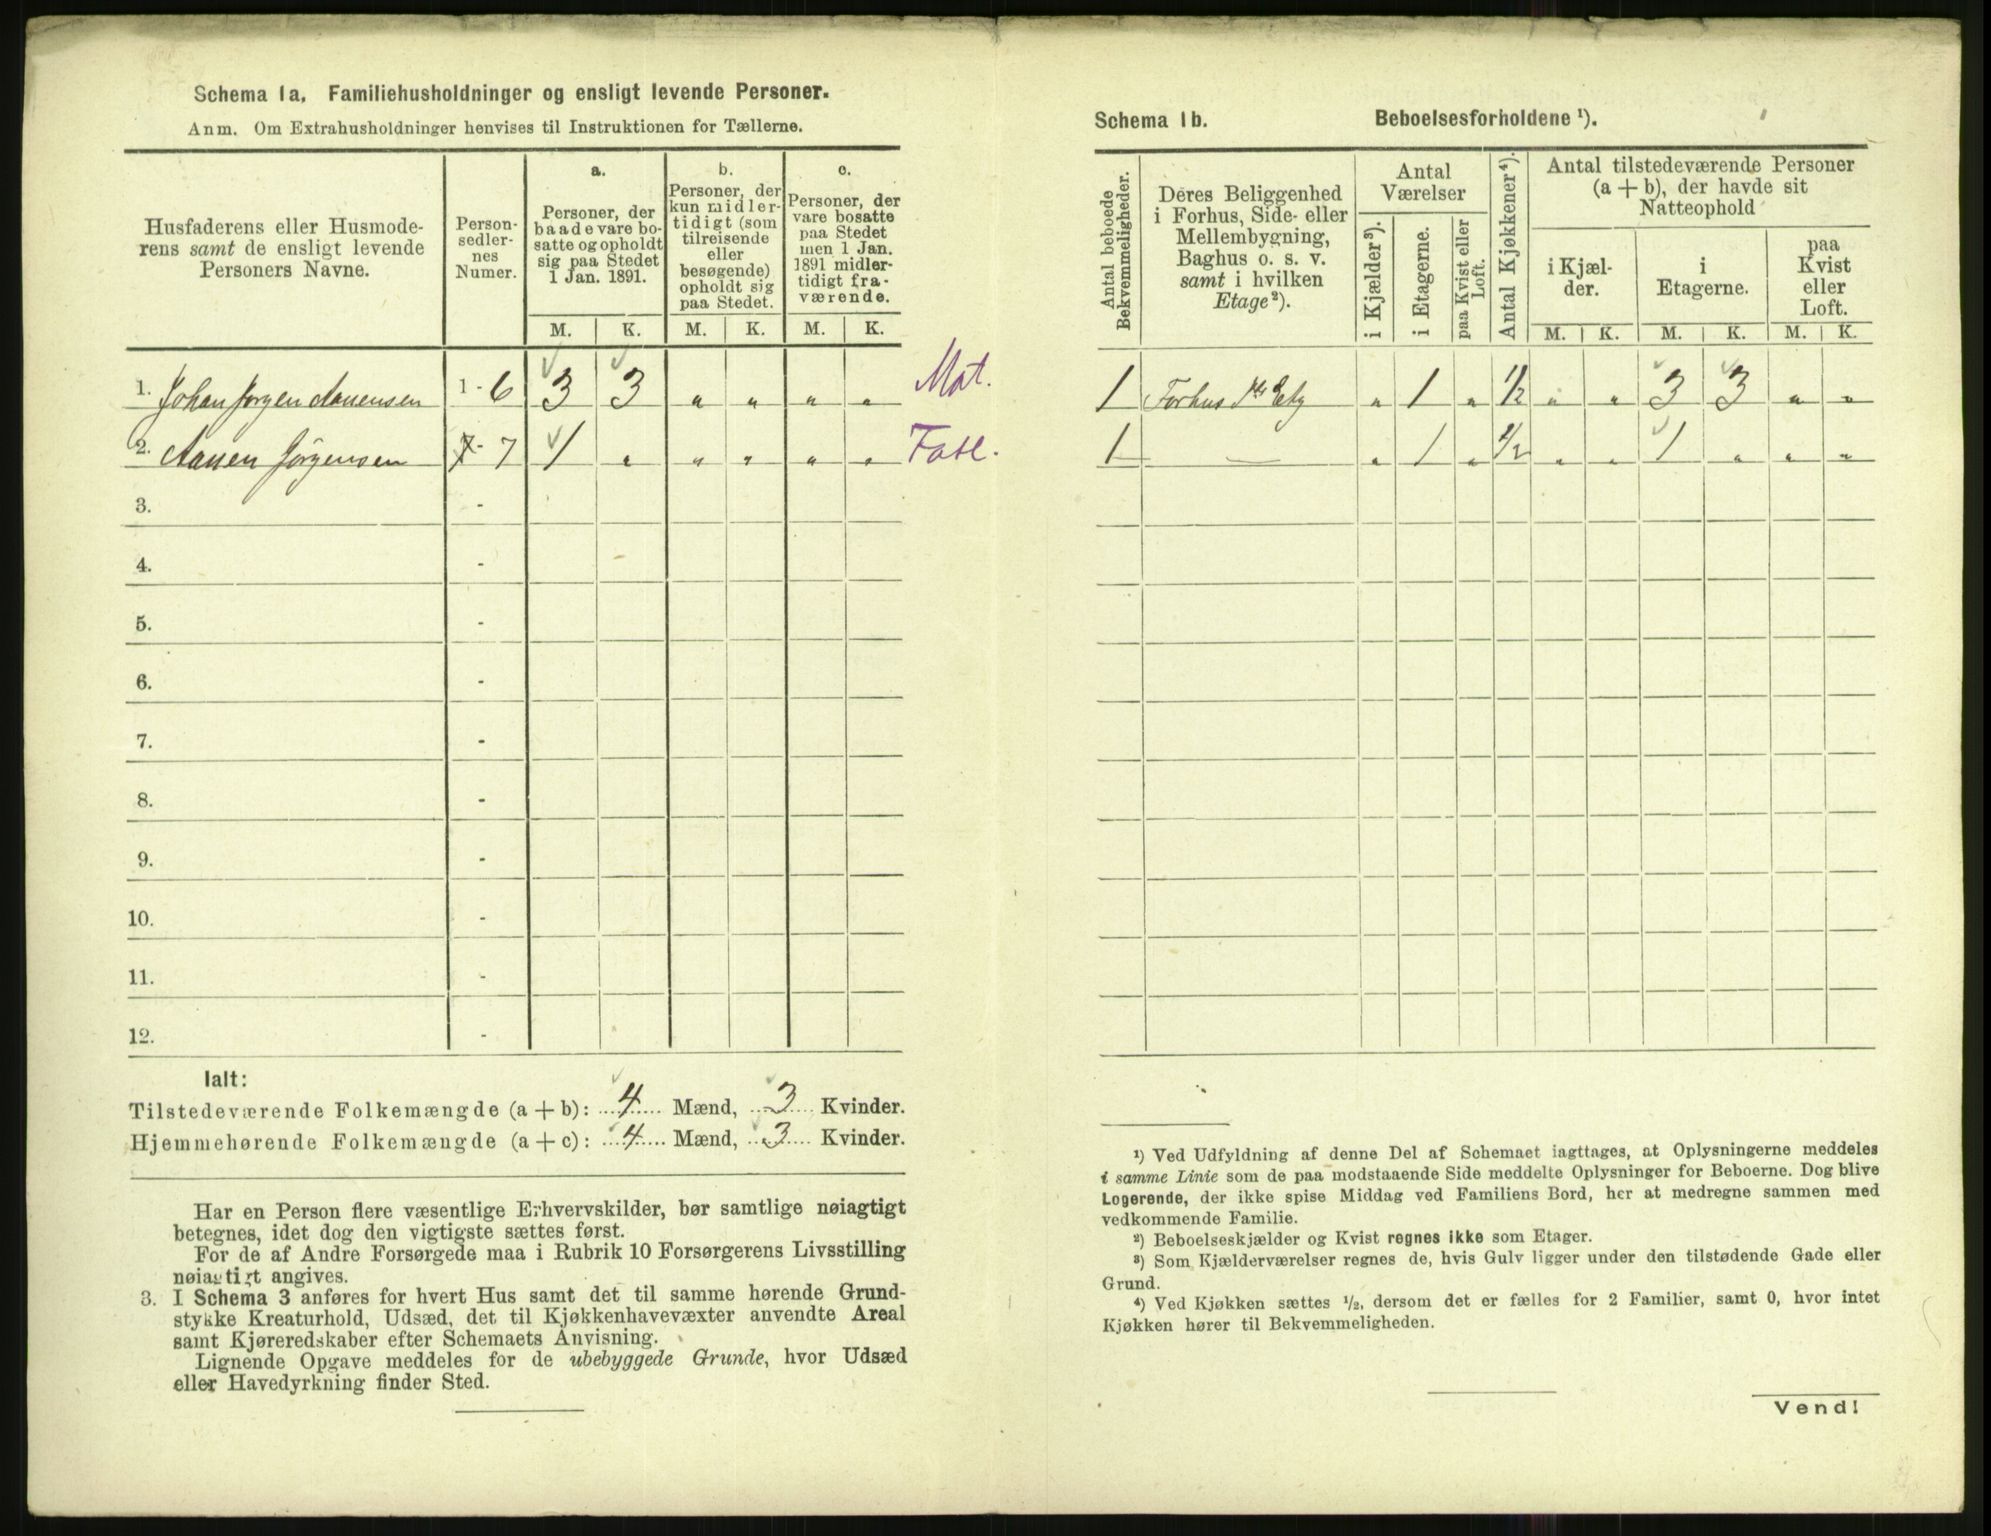 Schema 1a. Familiehusholdninger og ensligt levende Personer.
Anm. Om Extrahusholdninger henvises til Instruktionen for Tællerne.
Husfaderens eller Husmode-
rens samt de ensligt levende
Personers Navne.
Person-
sedler-
nes
Numer.
a.
Personer, der
baade vare bo-
satte og opholdt
sig paa Stedet
1 Jan. 1891.
b.
Personer, der
kun midler-
tidigt (som
tilreisende
eller
besøgende)
opholdt sig
paa Stedet.
c.
Personer, der
vare bosatte
paa Stedet
men 1 Jan.
1891 midler-
tidigt fra-
værende.
M. K. M. K. M. K.
1. Johan Jørgen Aanensen 1 - 6 3 3 " " " " Mat.
2. Aanen Jørgensen 7 - 7 1 " " " " "
3. -
4. -
5. -
6. -
7. -
8. -
9. -
10. -
11. -
12. -
Ialt:
Tilstedeværende Folkemængde (a + b): 4 Mænd, 3 Kvinder.
Hjemmehørende Folkemængde (a + c): 4 Mænd, 3 Kvinder.
Har en Person flere væsentlige Erhvervskilder, bør samtlige nøiagtigt
betegnes, idet dog den vigtigste sættes først.
For de af Andre Forsørgede maa i Rubrik 10 Forsørgerens Livsstilling
nøiagtigt angives.
3. I Schema 3 anføres for hvert Hus samt det til samme hørende Grund-
stykke Kreaturhold, Udsæd, det til Kjøkkenhavevæxter anvendte Areal
samt Kjøreredskaber efter Schemaets Anvisning.
Lignende Opgave meddeles for de ubebyggede Grunde, hvor Udsæd
eller Havedyrkning finder Sted.
Schema 1b. Beboelsesforholdene ¹).
Antal beboede
Bekvemmeligheder.
Deres Beliggenhed
i Forhus, Side- eller
Mellembygning,
Baghus o. s. v.
samt i hvilken
Etage²).
Antal
Værelser
i Kjælder³).
i Etagerne.
paa Kvist eller
Loft.
Antal Kjøkkener⁴).
Antal tilstedeværende Personer
(a + b), der havde sit
Natteophold
i Kjæl-
der.
i
Etagerne.
paa
Kvist
eller
Loft.
M. K. M. K. M. K.
1 Forhus 1ste Etg " 1 " 1/2 " " 3 3 " "
1 — " 1 " 1/2 " " 1 " " "
¹) Ved Udfyldning af denne Del af Schemaet iagttages, at Oplysningerne meddeles
i samme Linie som de paa modstaaende Side meddelte Oplysninger for Beboerne. Dog blive
Logerende, der ikke spise Middag ved Familiens Bord, her at medregne sammen med
vedkommende Familie.
²) Beboelseskjælder og Kvist regnes ikke som Etager.
³) Som Kjælderværelser regnes de, hvis Gulv ligger under den tilstødende Gade eller
Grund.
⁴) Ved Kjøkken sættes ¹/₂, dersom det er fælles for 2 Familier, samt 0, hvor intet
Kjøkken hører til Bekvemmeligheden.
Vend!